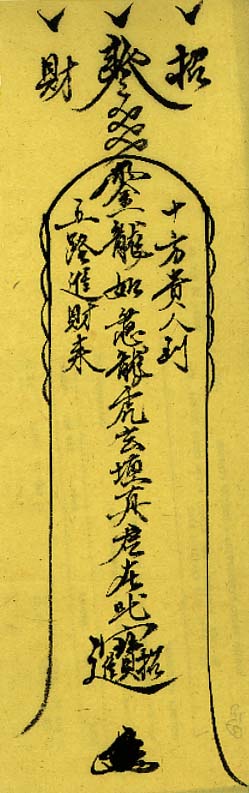 招
財
十方貴人到
龍如意龍虎玄壇真君在此
五路進財來